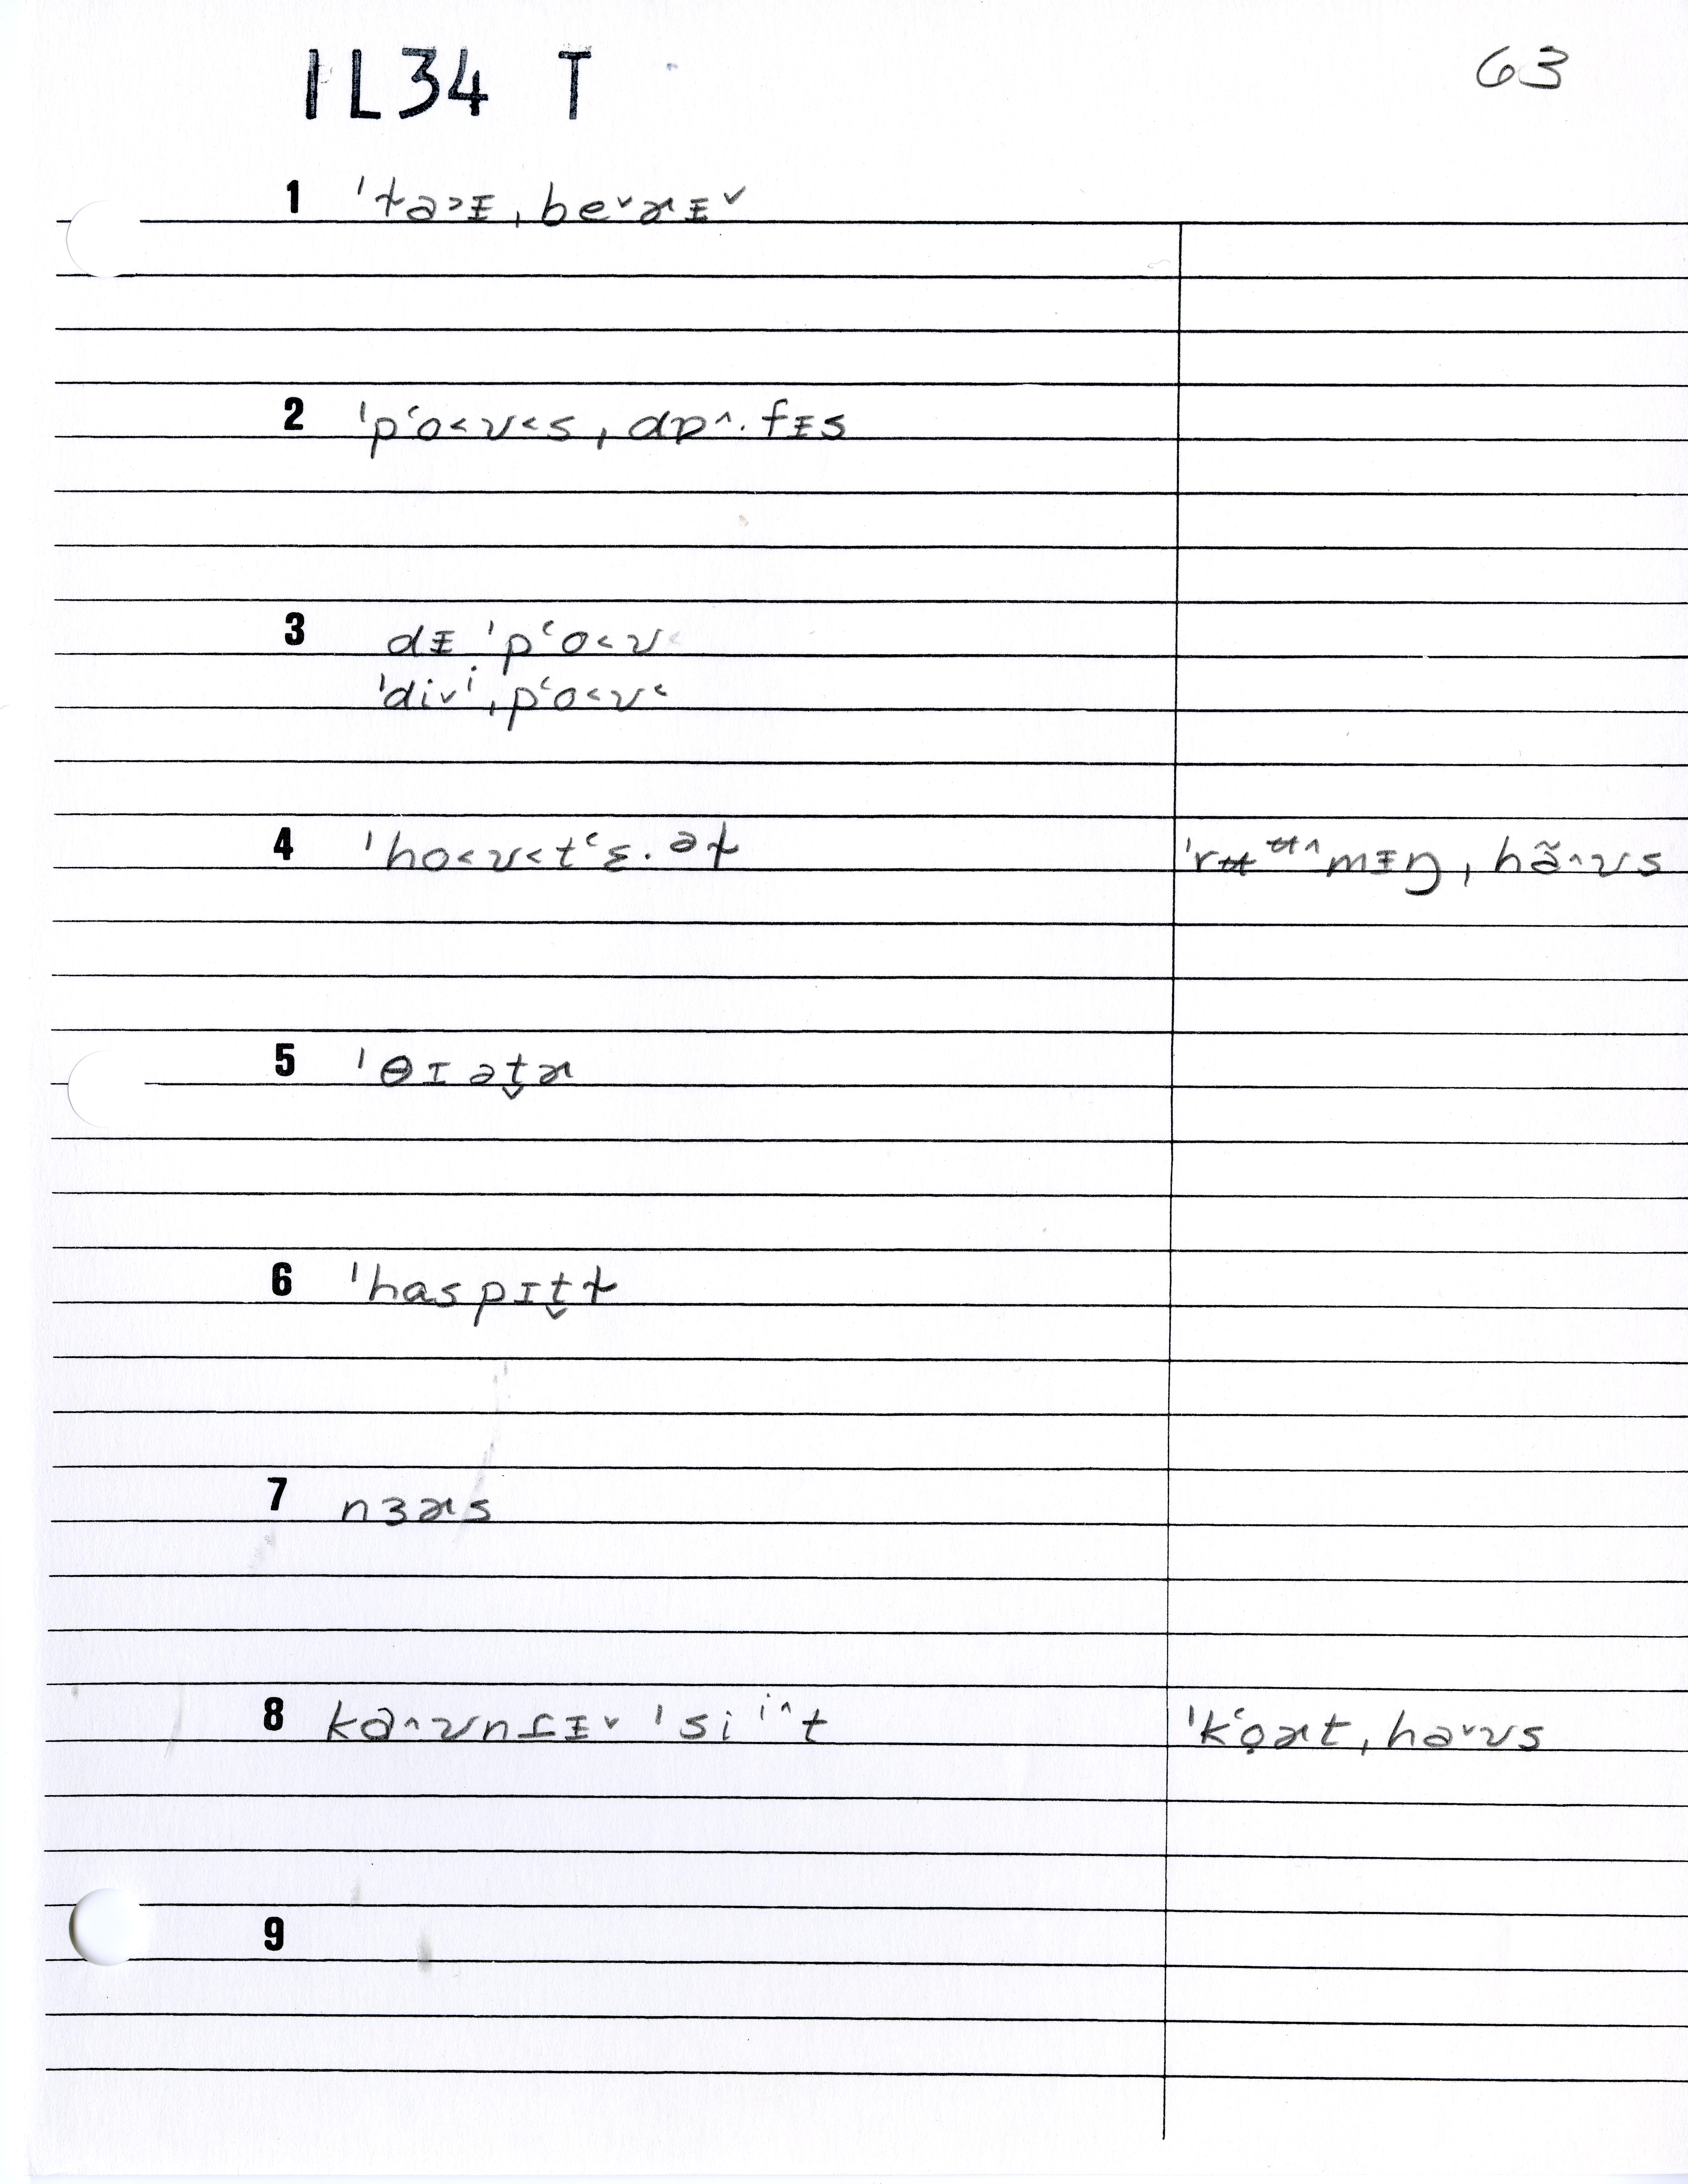 IL34 T
63
1 ˈɫa˃ᵻˌbe˅ɚᵻ˅
2 ˈpʻo˂ʊ˂sˌdɒ˄·fᵻs
3 dᵻ ˈpʻo˂ʊ˂
ˈdi˅ⁱˌpʻo˂ʊ˂
4 ˈho˂ʊ˂tʻɛ·ᵊɫ ˈrʉᶶ˄mᵻŋˌhã˄ʊs
5 ˈθɪət̬ɚ
6 ˈhaspɪt̬ɫ
7 nɜɚs
8 ka˄ʊnɾᵻ˅ ˈsiⁱ˄t ˈkʻo̞ɚtˌha˅ʊs
9